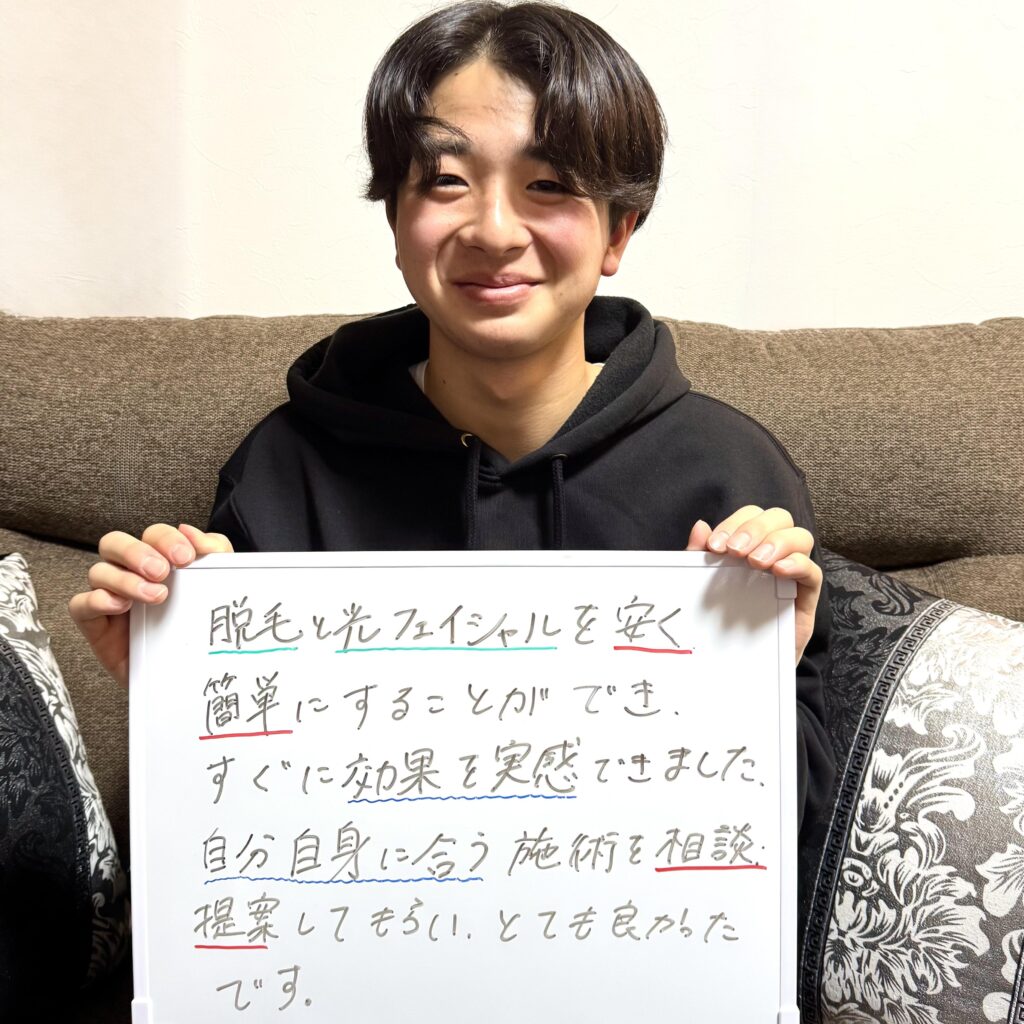 脱毛と光フェイシャルを安く
簡単にすることができ、
すぐに効果を実感できました、
自分自身に合う施術を相談、
提案してもらい、とても良かった
です。